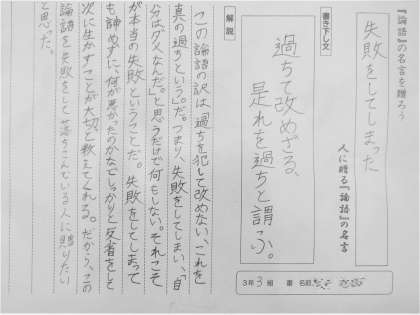 『論語』の名言を贈ろう
失敗をしてしまった
人に贈る『論語』の名言
書き下し文
過ちて改めざる、
是れを過ちと謂ふ。
3年 3 組 番 名前
解説
この論語の訳は「過ちを犯して改めない、これを
真の過ちという」だ。つまり、失敗をしてしまい、「自
分はダメなんだ。」と思うだけで何もしない。それこそ
が本当の失敗ということだ。失敗をしてしまって
も諦めずに、何が悪かったのかなどしっかりと反省をして
次に生かすことが大切と教えてくれる。だから、この
論語を失敗をして落ちこんでいる人に贈りたい
と思った。